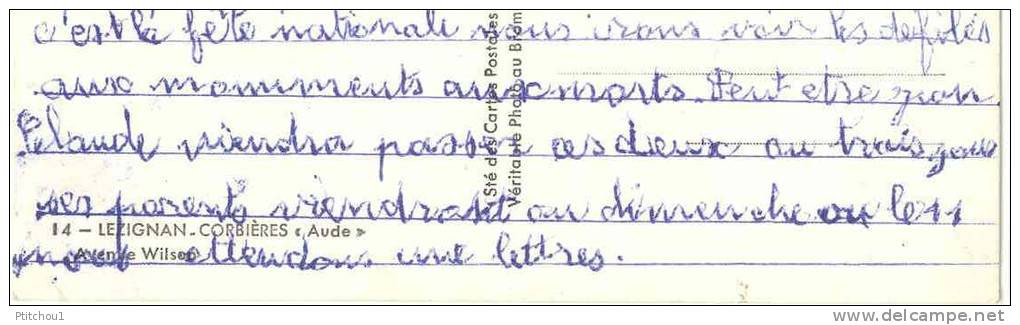 c'est la fête nationale nous irons voir les defilés
aux monuments aux morts. Peut etre jean
Claude viendra passer ces deux ou trais jour
ses parents viendront au dimenche ou le 11
14 - LEZIGNAN-CORBIÈRES « Aude »
Avenue Wilson
nous attendons une lettres.
Sté des Cartes Postales
Véritable Photo au Brom
Ptitchou1
delcampe.net